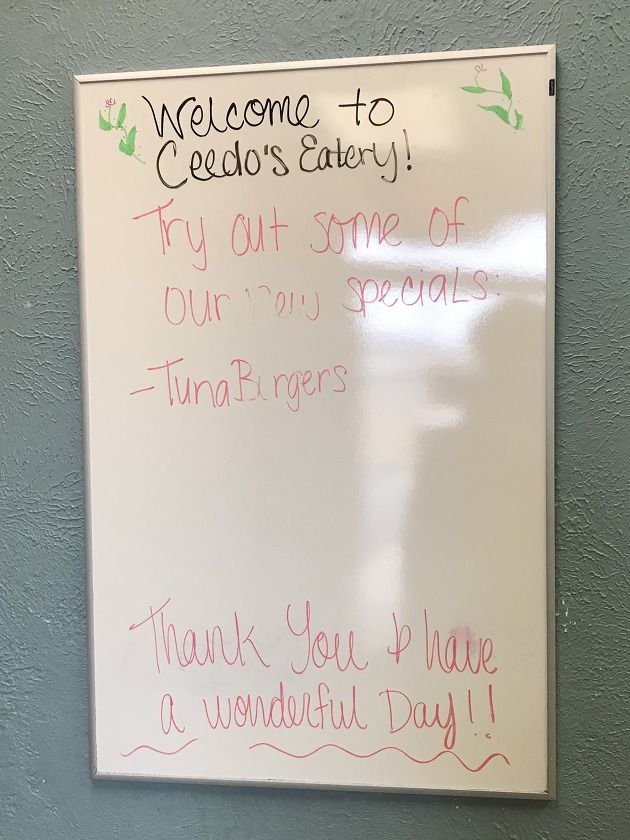 Welcome to
Ceedo's Eatery!
Try out some of
our new specials:
- Tuna Burgers
Thank You & have
a wonderful Day!!